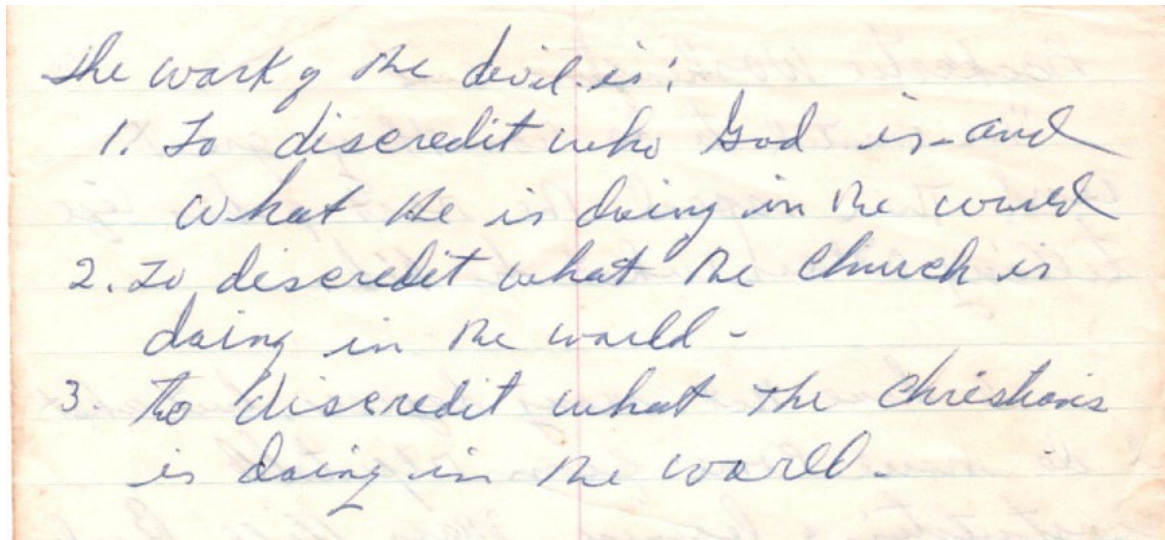 The work of the devil is:
1. To discredit who God is - and
What He is doing in the world
2. To discredit what the Church is
doing in the world -
3. To discredit what the Christians
is doing in the world -